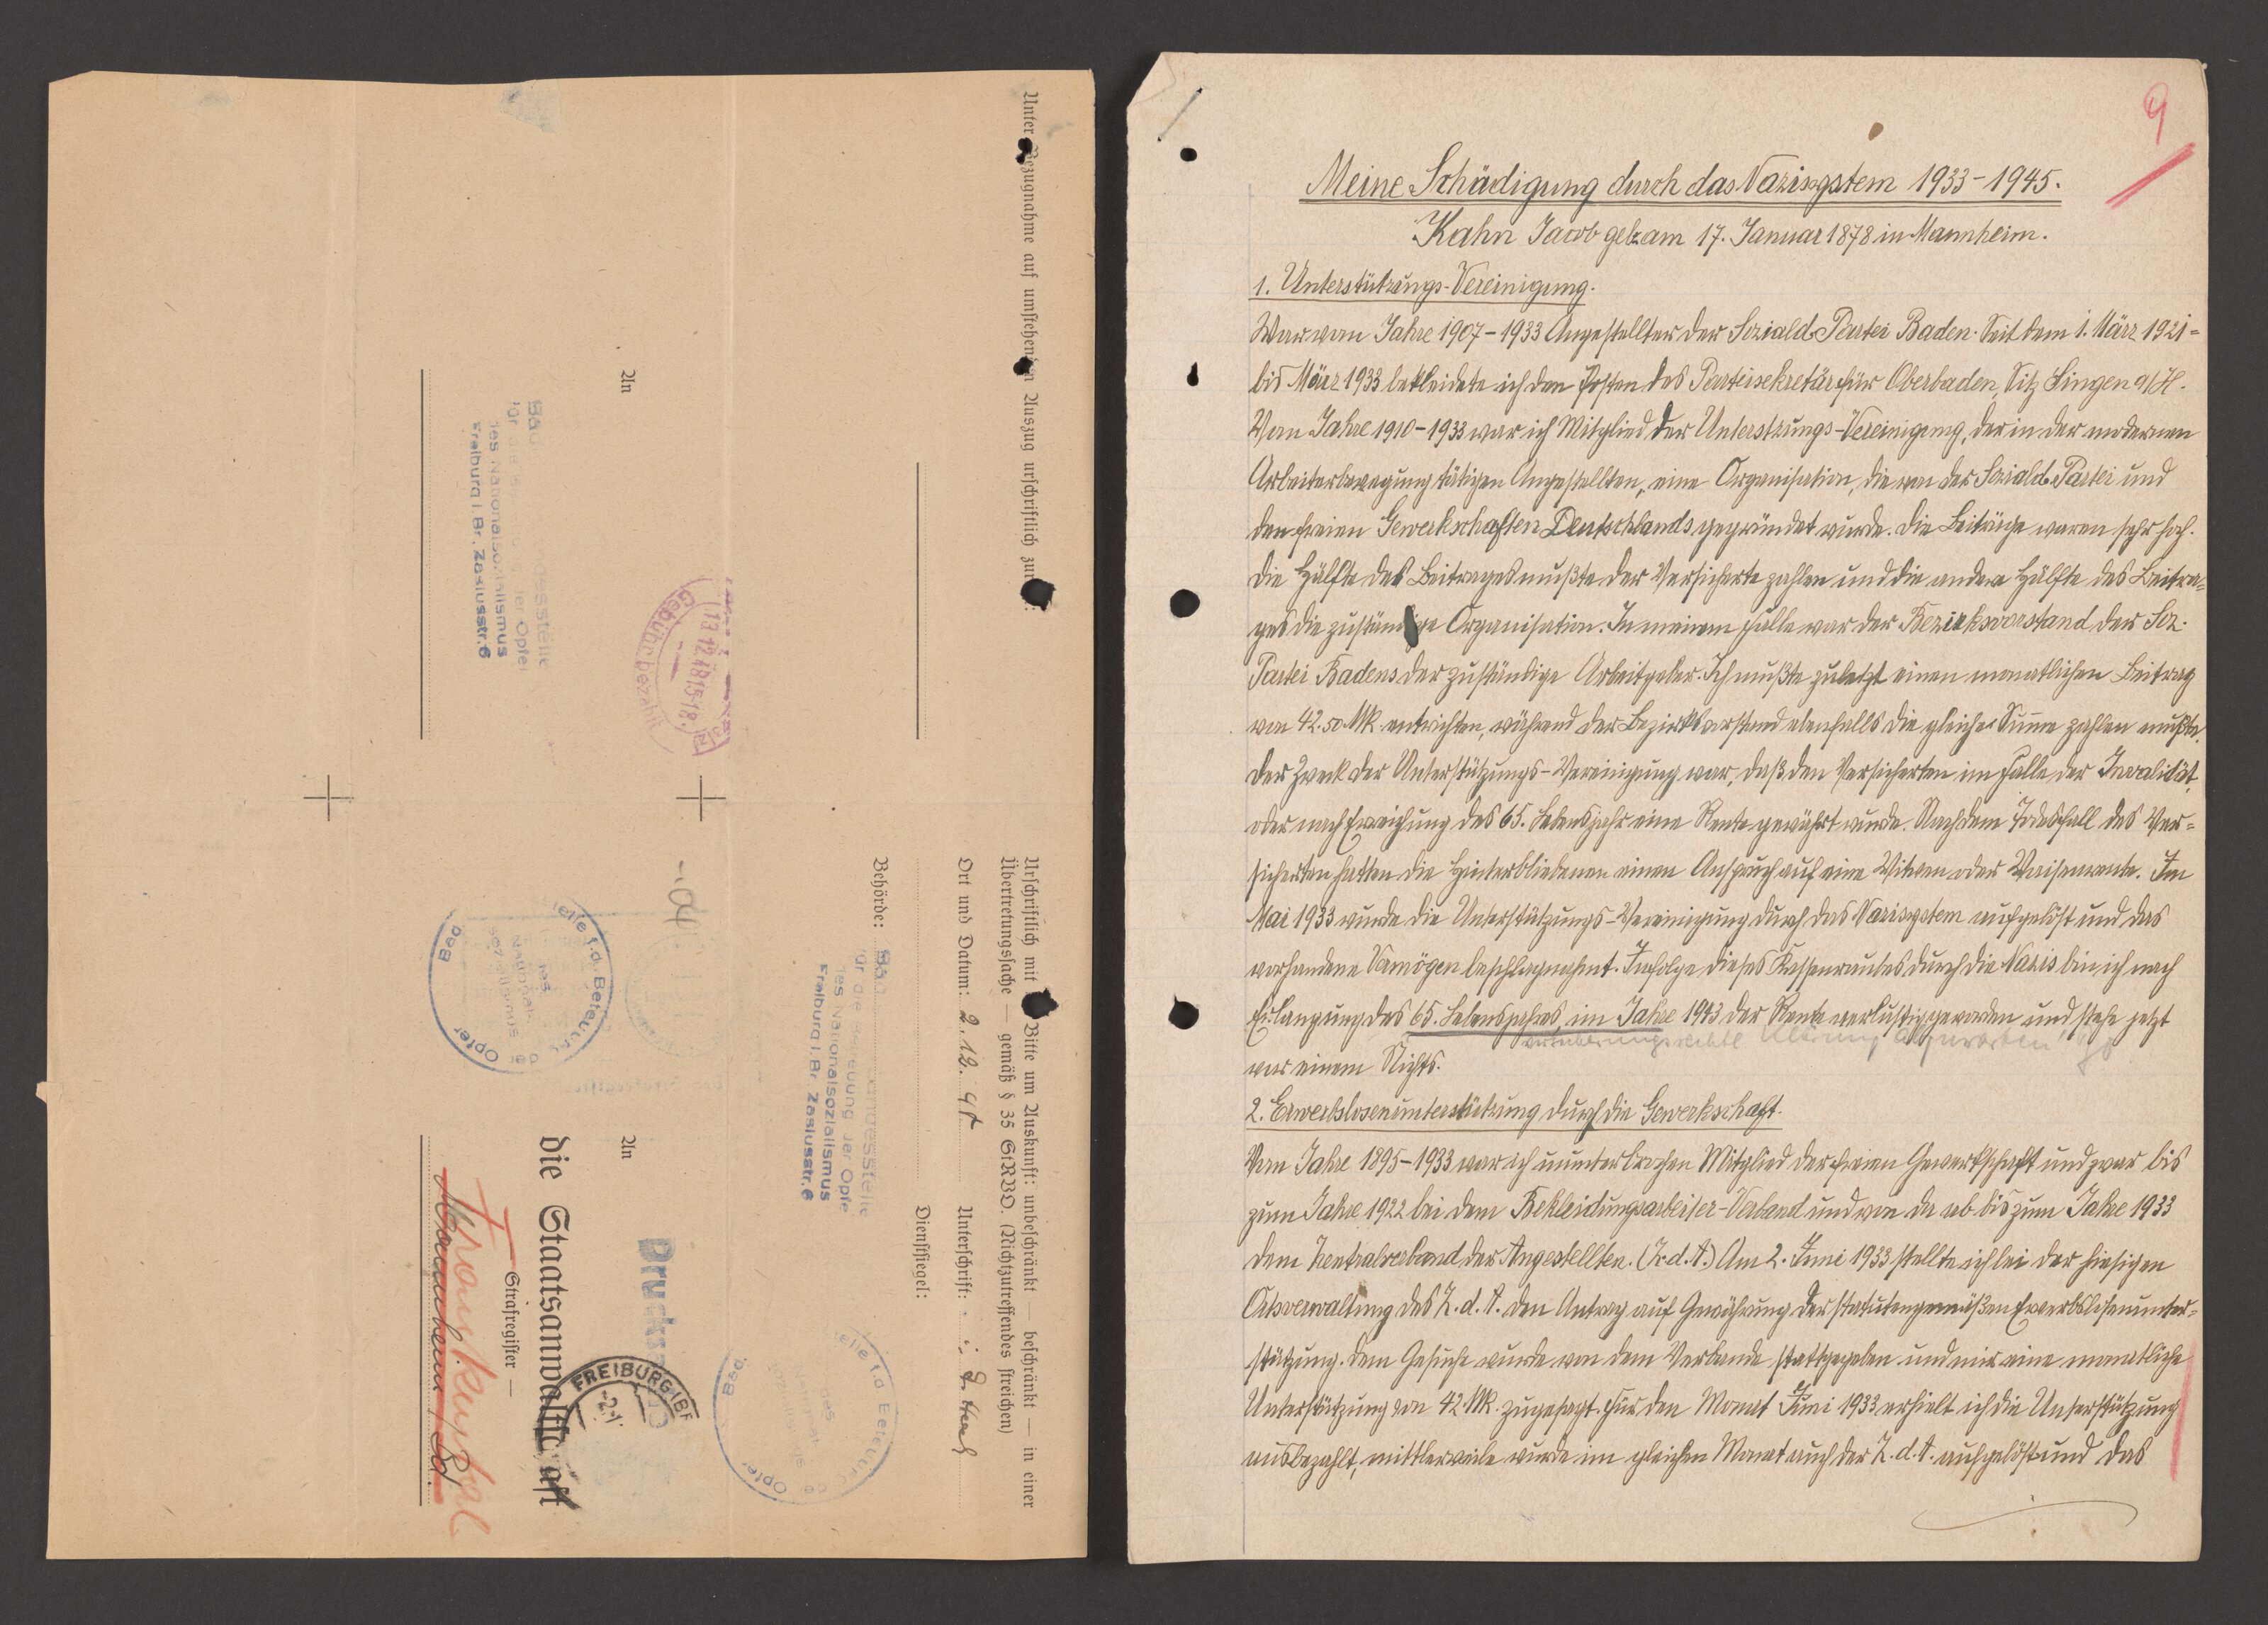 Unter Bezugnahme auf umstehenden Auszug urschriftlich zur
An
desstelle
der Opfer
des Nationalsozialismus
Freiburg i. Br. Zasiusstr. 6
Gebühr bezahlt
13.12.48 15-18
Urschriftlich mit Bitte um Auskunft: unbeschränkt — beschränkt — in einer
Übertretungssache — gemäß § 35 StRVO. (Nichtzutreffendes streichen)
Ort und Datum: 2. 12. 48 Unterschrift:
Dienstsiegel:
Behörde: Bad. Landesstelle
für die Betreuung der Opfer
des Nationalsozialismus
Freiburg i. Br. Zasiusstr. 6
Drucksache
FREIBURG (BR
An
die Staatsanwaltschaft
Strafregister —
Mannheim / Bd.
Frankental
9
Meine Schädigung durch das Nazisystem 1933-1945.
Kahn Jacob geb. am 17. Januar 1878 in Mannheim.
1. Unterstützungs-Vereinigung.
War vom Jahre 1907-1933 Angestellter der Soziald. Partei Baden. Seit dem 1. März 1921-
bis März 1933 bekleidete ich den Posten des Parteisekretär für Oberbaden, Sitz Singen a/H.
Vom Jahre 1910-1933 war ich Mitglied der Unterstzungs-Vereinigung, der in der modernen
Arbeiterbewegung tätigen Angestellten, eine Organisation, die von der Soziald. Partei und
den freien Gewerkschaften Deutschlands gegründet wurde. Die Beiträge waren sehr hoch.
Die Hälfte des Beitrages mußte der Versicherte zahlen und die andere Hälfte des Beitra-
ges die zuständige Organisation. In meinem Falle war der Bezirksvorstand der Soz.
Partei Badens der zuständige Arbeitgeber. Ich mußte zuletzt einen monatlichen Beitrag
von 42.50 Mk. entrichten, während der Bezirksvorstand ebenfalls die gleiche Summe zahlen mußte.
Der Zweck der Unterstützungs-Vereinigung war, daß den Versicherten im Falle der Invalidität,
oder nach Erreichung des 65. Lebensjahr eine Rente gewährt wurde. Nach dem Todesfall des Ver-
sicherten hatten die Hinterbliebenen einen Anspruch auf eine Witwen oder Waisenrente. Im
Mai 1933 wurde die Unterstützungs-Vereinigung durch das Nazisystem aufgelöst und das
vorhandene Vermögen beschlagnahmt. Infolge dieses Kassenraubes durch die Nazis bin ich nach
Erlangung des 65. Lebensjahres, im Jahre 1943 der Rente verlustig geworden und stehe jetzt
vor einem Nichts.
2. Erwerbslosenunterstützung durch die Gewerkschaft.
Vom Jahre 1895-1933 war ich ununterbrochen Mitglied der freien Gewerkschaft und zwar bis
zum Jahre 1922 bei dem Bekleidungsarbeiter-Verband und von da ab bis zum Jahre 1933
dem Zentralverband der Angestellten. (Z.d.A.) Am 2. Juni 1933 stellte ich bei der hiesigen
Ortsverwaltung des Z.d.A. den Antrag auf Gewährung der statutengemäßen Erwerbslosenunter-
stützung. Dem Gesuche wurde von dem Verbande stattgegeben und mir eine monatliche
Unterstützung von 42 Mk. zugesagt. Für den Monat Juni 1933 erhielt ich die Unterstützung
ausbezahlt, mittlerweile wurde im gleichen Monat auch der Z.d.A. aufgelöst und das